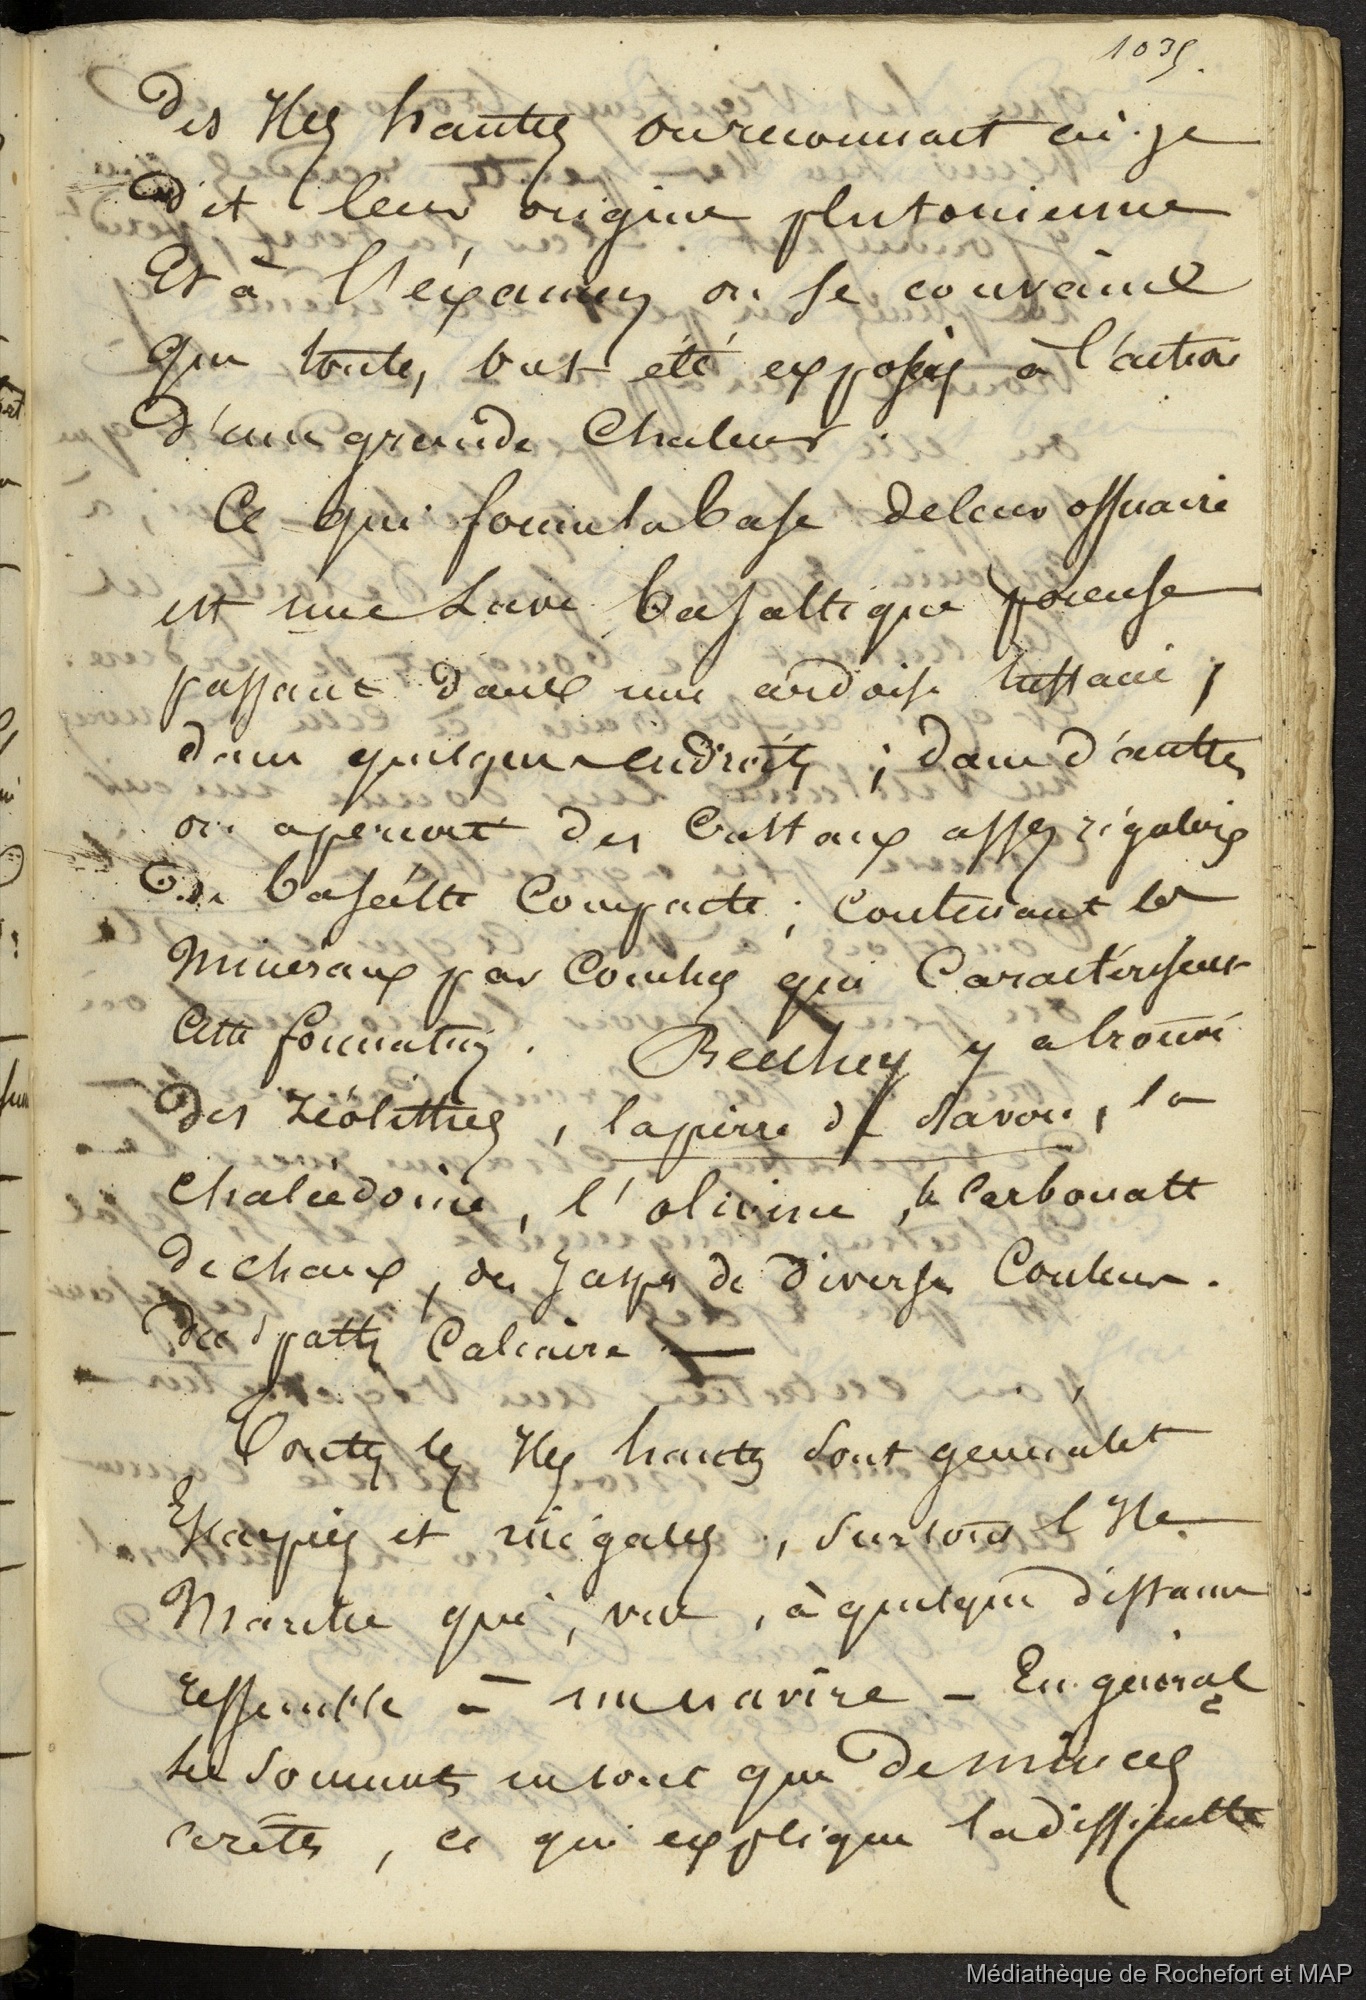 1035.
Des Iles hautes on reconnait ai-je
Dit leur origine plutonienne
Et à l'éxamen on se convainc
que toutes, ont été exposées à l'action
D'une grande Chaleur.
Ce qui forme la base de leur ossuaire
est une Lave basaltique poreuse
passant dans une ardoise
dans quelques endroits ; dans d'autres
on aperçoit des cristaux assez réguliers
De basalte Compacte ; contenant les
Mineraux par Couches qui Caractérisent
Cette formation. Beechey y a trouvé
Des zéolithes, la pierre de Savon, la
chalcédoine, l'olivine, le carbonate
de chaux, des Jaspes de diverses Couleurs.
Des spaths Calcaire —
Toutes les Iles hautes sont généralet
Escarpées et inégales, surtout l'Ile
qui, vue, à quelque distance
ressemble à un navire - En général
les sommets ne sont que De minces
crêtes, ce qui explique la difficulté
Médiathèque de Rochefort et MAP